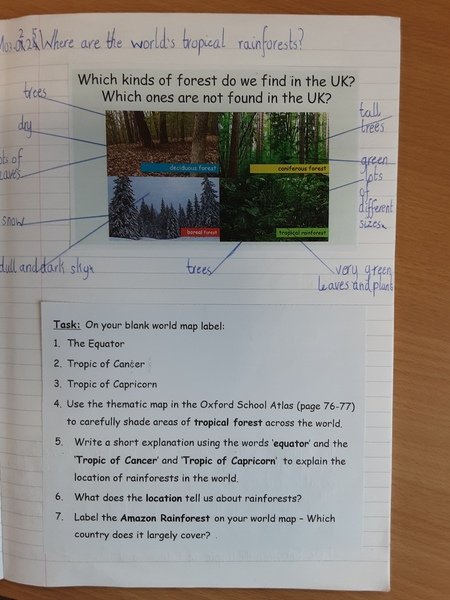 Where are the world's tropical rainforests?
Which kinds of forest do we find in the UK?
Which ones are not found in the UK?
trees
dry
leaves
snow
dull and dark sky
trees
deciduous forest
coniferous forest
boreal forest
tropical rainforest
tall
trees
green
lots
of
different
sizes
very green
leaves and plants
Task: On your blank world map label:
1. The Equator
2. Tropic of Cancer
3. Tropic of Capricorn
4. Use the thematic map in the Oxford School Atlas (page 76-77)
to carefully shade areas of tropical forest across the world.
5. Write a short explanation using the words 'equator' and the
'Tropic of Cancer' and 'Tropic of Capricorn' to explain the
location of rainforests in the world.
6. What does the location tell us about rainforests?
7. Label the Amazon Rainforest on your world map – Which
country does it largely cover?